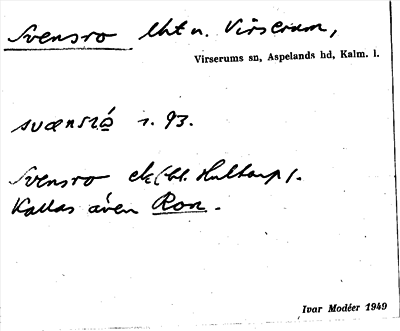 Svensro lht u. Virserum,
Virserums sn, Aspelands hd, Kalm. l.
svænsró s. 93.
Svensro ek(bl. Hultarp).
Kallas även Ron.
Ivar Modéer 1949